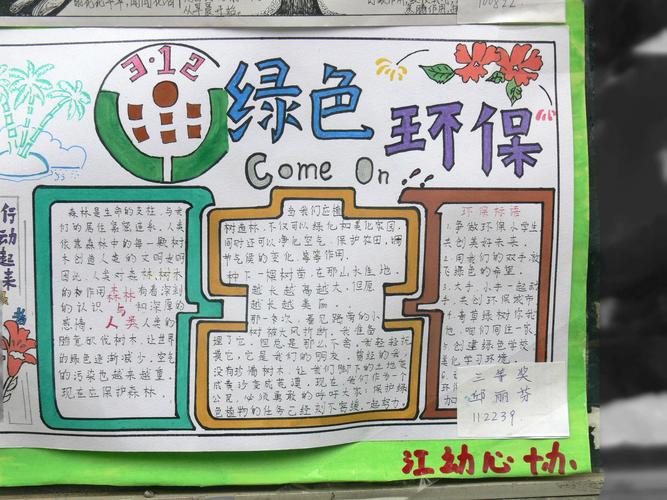 3·12
绿色
环保
Come On
行动起来
森林是生命的支柱,与我
们的居住息息连系,人类
依靠森林中的每一颗树
木创造人类的文明
因此,人类对森林,树木
的和作用 森林有着深刻
的认识 与 和深厚的
感情。 人类 人类的
树木,让世界
的绿色逐渐减少,空气
的污染也越来越重,
现在应保护森林。
当我们在植
树造林,不仅可以绿化和美化家园,
同时还可以净化空气、保护农田、调
节气候的变化,等等作用。
种下一棵树苗,在那山水陆地,
越长越高越大,但愿
越长越美丽。
那一次,看见路旁的小
树被大风折断,我准备
理了它,但总是那么不舍,我轻轻抚
摸它,它是我们的朋友,曾经的我,
没有珍惜树木,让我们脚下的土地变
成黄沙变成荒漠,现在,我们作为一个
公民,必须勇敢的呼吁大家:保护绿
色植物的任务已经刻不容缓,一起努力。
环保标语
1.争做环保小学生
共创美好未来。
2.用我们的双手放
飞绿色的希望。
3.大手,小手一起动
手,共创环保城市
4.青青草绿树你我
他,咱们同住一家
5.创建绿色学校
美化学习环境。
6.
三等奖
邱丽芬
112239
江幼心协